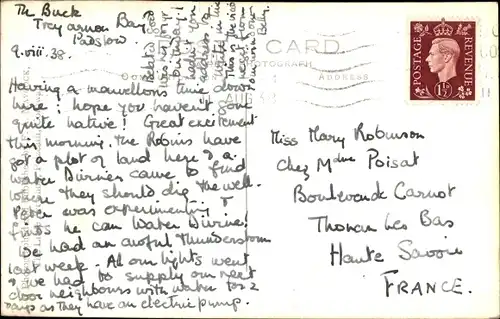 The Buck
Treyarnon Bay
Padstow.
9.viii.38.
Having a marvellous time down
here! hope you haven't gone
quite native! Great excitement
this morning. The Robins have
got a plot of land here & a
Water Diviner came to find
where they should dig the well.
Peter was experimenting &
finds he can Water Divine!
We had an awful thunderstorm
last week. All our lights went
& we had to supply our next
door neighbours with water for 2
days as they have an electric pump.
Belated Good
Birthday!
hadn't your
address to
write in time
Betty.
CARD.
PHOTOGRAPH
ADDRESS
POSTAGE
REVENUE
1½D
Miss Mary Robinson
Chez Mdme Poisat
Boulevarde Carnot
Thonon Les Bas
Haute Savoie
FRANCE.